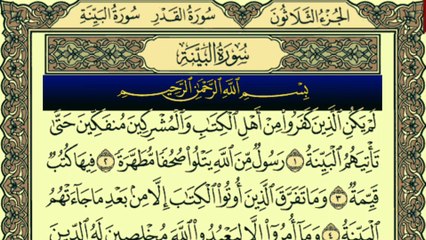 الجزء الثلاثون سورة القدر سورة البينة
سورة البينة
بسم الله الرحمن الرحيم
لَمْ يَكُنِ الَّذِينَ كَفَرُوا مِنْ أَهْلِ الْكِتَابِ وَالْمُشْرِكِينَ مُنفَكِّينَ حَتَّىٰ
تَأْتِيَهُمُ الْبَيِّنَةُ ١ رَسُولٌ مِّنَ اللَّهِ يَتْلُوا صُحُفًا مُّطَهَّرَةً ٢ فِيهَا كُتُبٌ
قَيِّمَةٌ ٣ وَمَا تَفَرَّقَ الَّذِينَ أُوتُوا الْكِتَابَ إِلَّا مِن بَعْدِ مَا جَاءَتْهُمُ
الْبَيِّنَةُ ٤ وَمَا أُمِرُوا إِلَّا لِيَعْبُدُوا اللَّهَ مُخْلِصِينَ لَهُ الدِّينَ